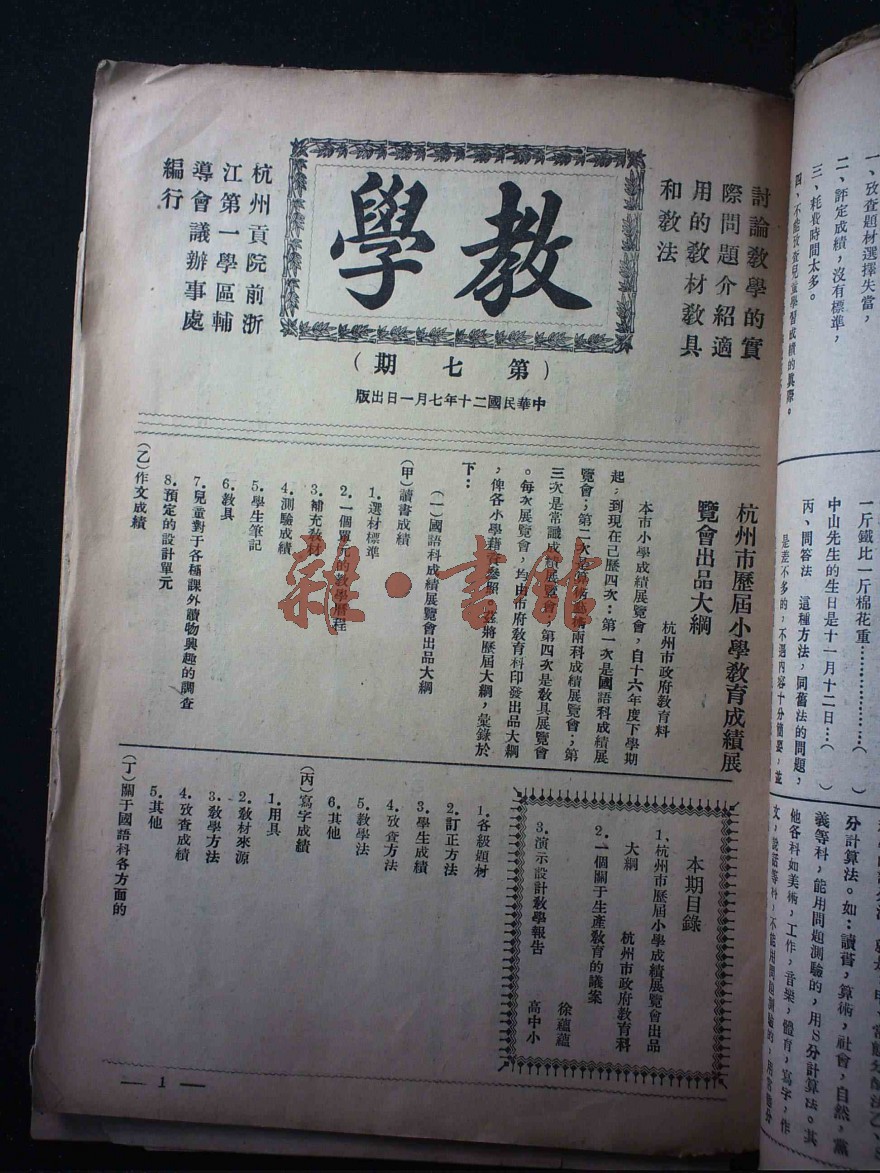 討論教學的實
際問題介紹適
用的教材教具
和教法
教學
(第七期)
中華民國二十年七月一日出版
杭州貢院前浙
江第一學區輔
導會議辦事處
編行
杭州市歷屆小學敎育成績展
覽會出品大綱
杭州市政府敎育科
本市小學成績展覽會,自十六年度下學期
起;到現在已歷四次:第一次是國語科成績展
覽會;第二次是兩科成績展覽會;第
三次是常識成績展覽會,第四次是敎具展覽會
。每次展覽會,均由市府敎育科印發出品大綱
,俾各小學藉資參照。茲將歷屆大綱,彙錄於
下:
(一)國語科成績展覽會出品大綱
(甲)讀書成績
1.選材標準
2.一個單元的敎學歷程
3.補充敎材
4.測驗成績
5.學生筆記
6.敎具
7.兒童對于各種課外讀物興趣的調查
8.預定的設計單元
(乙)作文成績
本期目錄
1、杭州市歷屆小學成績展覽會出品
大綱 杭州市政府敎育科
2.一個關于生產敎育的議案
徐蘊蘊
3.演示設計敎學報告 高中小
1.各級題材
2.訂正方法
3.學生成績
4.攷查方法
5.敎學法
6.其他
(丙)寫字成績
1.用具
2.敎材來源
3.敎學方法
4.攷查成績
5.其他
(丁)關于國語科各方面的
— 1 —
雜·書館
一、攷查題材選擇失當,
二、評定成績,沒有標準,
三、耗費時間太多。
四、不能攷查兒童學習成績的眞際。
一斤鐵比一斤棉花重………( )
中山先生的生日是十一月十二日…( )
丙、問答法 這種方法,同舊法的問題,
是差不多的,不過內容十分簡要,並
分計算法。如:讀書,算術,社會,自然,黨
義等科,能用問題測驗的,用S分計算法。其
他各科如美術,工作,音樂,體育,寫字,作
文,說話等科,不能用問題測驗的,用常態分